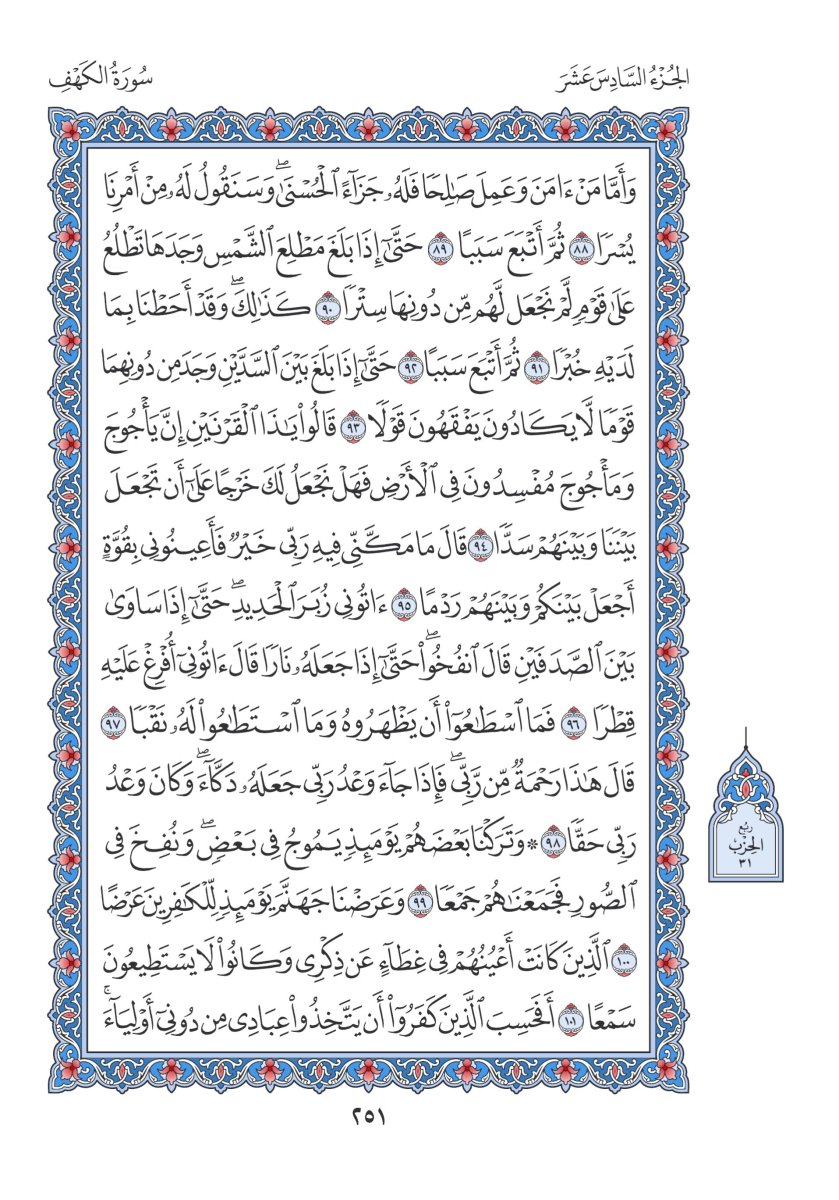 الجُزْءُ السَّادِسَ عَشَرَ
سُورَةُ الكَهْفِ
وَأَمَّا مَنْ ءَامَنَ وَعَمِلَ صَٰلِحٗا فَلَهُۥ جَزَآءً ٱلۡحُسۡنَىٰۖ وَسَنَقُولُ لَهُۥ مِنۡ أَمۡرِنَا
يُسۡرٗا ٨٨ ثُمَّ أَتۡبَعَ سَبَبًا ٨٩ حَتَّىٰٓ إِذَا بَلَغَ مَطۡلِعَ ٱلشَّمۡسِ وَجَدَهَا تَطۡلُعُ
عَلَىٰ قَوۡمٖ لَّمۡ نَجۡعَل لَّهُم مِّن دُونِهَا سِتۡرٗا ٩٠ كَذَٰلِكَۖ وَقَدۡ أَحَطۡنَا بِمَا
لَدَيۡهِ خُبۡرٗا ٩١ ثُمَّ أَتۡبَعَ سَبَبًا ٩٢ حَتَّىٰٓ إِذَا بَلَغَ بَيۡنَ ٱلسَّدَّيۡنِ وَجَدَ مِن دُونِهِمَا
قَوۡمٗا لَّا يَكَادُونَ يَفۡقَهُونَ قَوۡلٗا ٩٣ قَالُواْ يَٰذَا ٱلۡقَرۡنَيۡنِ إِنَّ يَأۡجُوجَ
وَمَأۡجُوجَ مُفۡسِدُونَ فِي ٱلۡأَرۡضِ فَهَلۡ نَجۡعَلُ لَكَ خَرۡجًا عَلَىٰٓ أَن تَجۡعَلَ
بَيۡنَنَا وَبَيۡنَهُمۡ سَدّٗا ٩٤ قَالَ مَا مَكَّنِّي فِيهِ رَبِّي خَيۡرٞ فَأَعِينُونِي بِقُوَّةٍ
أَجۡعَلۡ بَيۡنَكُمۡ وَبَيۡنَهُمۡ رَدۡمًا ٩٥ ءَاتُونِي زُبَرَ ٱلۡحَدِيدِۖ حَتَّىٰٓ إِذَا سَاوَىٰ
بَيۡنَ ٱلصَّدَفَيۡنِ قَالَ ٱنفُخُواْۖ حَتَّىٰٓ إِذَا جَعَلَهُۥ نَارٗا قَالَ ءَاتُونِيٓ أُفۡرِغۡ عَلَيۡهِ
قِطۡرٗا ٩٦ فَمَا ٱسۡطَٰعُوٓاْ أَن يَظۡهَرُوهُ وَمَا ٱسۡتَطَٰعُواْ لَهُۥ نَقۡبٗا ٩٧
قَالَ هَٰذَا رَحۡمَةٞ مِّن رَّبِّيۖ فَإِذَا جَآءَ وَعۡدُ رَبِّي جَعَلَهُۥ دَكَّآءَۖ وَكَانَ وَعۡدُ
رَبِّي حَقّٗا ٩٨ ۞ وَتَرَكۡنَا بَعۡضَهُمۡ يَوۡمَئِذٖ يَمُوجُ فِي بَعۡضٖۖ وَنُفِخَ فِي
ٱلصُّورِ فَجَمَعۡنَٰهُمۡ جَمۡعٗا ٩٩ وَعَرَضۡنَا جَهَنَّمَ يَوۡمَئِذٖ لِّلۡكَٰفِرِينَ عَرۡضًا
١٠٠ ٱلَّذِينَ كَانَتۡ أَعۡيُنُهُمۡ فِي غِطَآءٍ عَن ذِكۡرِي وَكَانُواْ لَا يَسۡتَطِيعُونَ
سَمۡعًا ١٠١ أَفَحَسِبَ ٱلَّذِينَ كَفَرُوٓاْ أَن يَتَّخِذُواْ عِبَادِي مِن دُونِيٓ أَوۡلِيَآءَۚ
رُبْعُ
الحِزْبِ
٣١
٢٥١